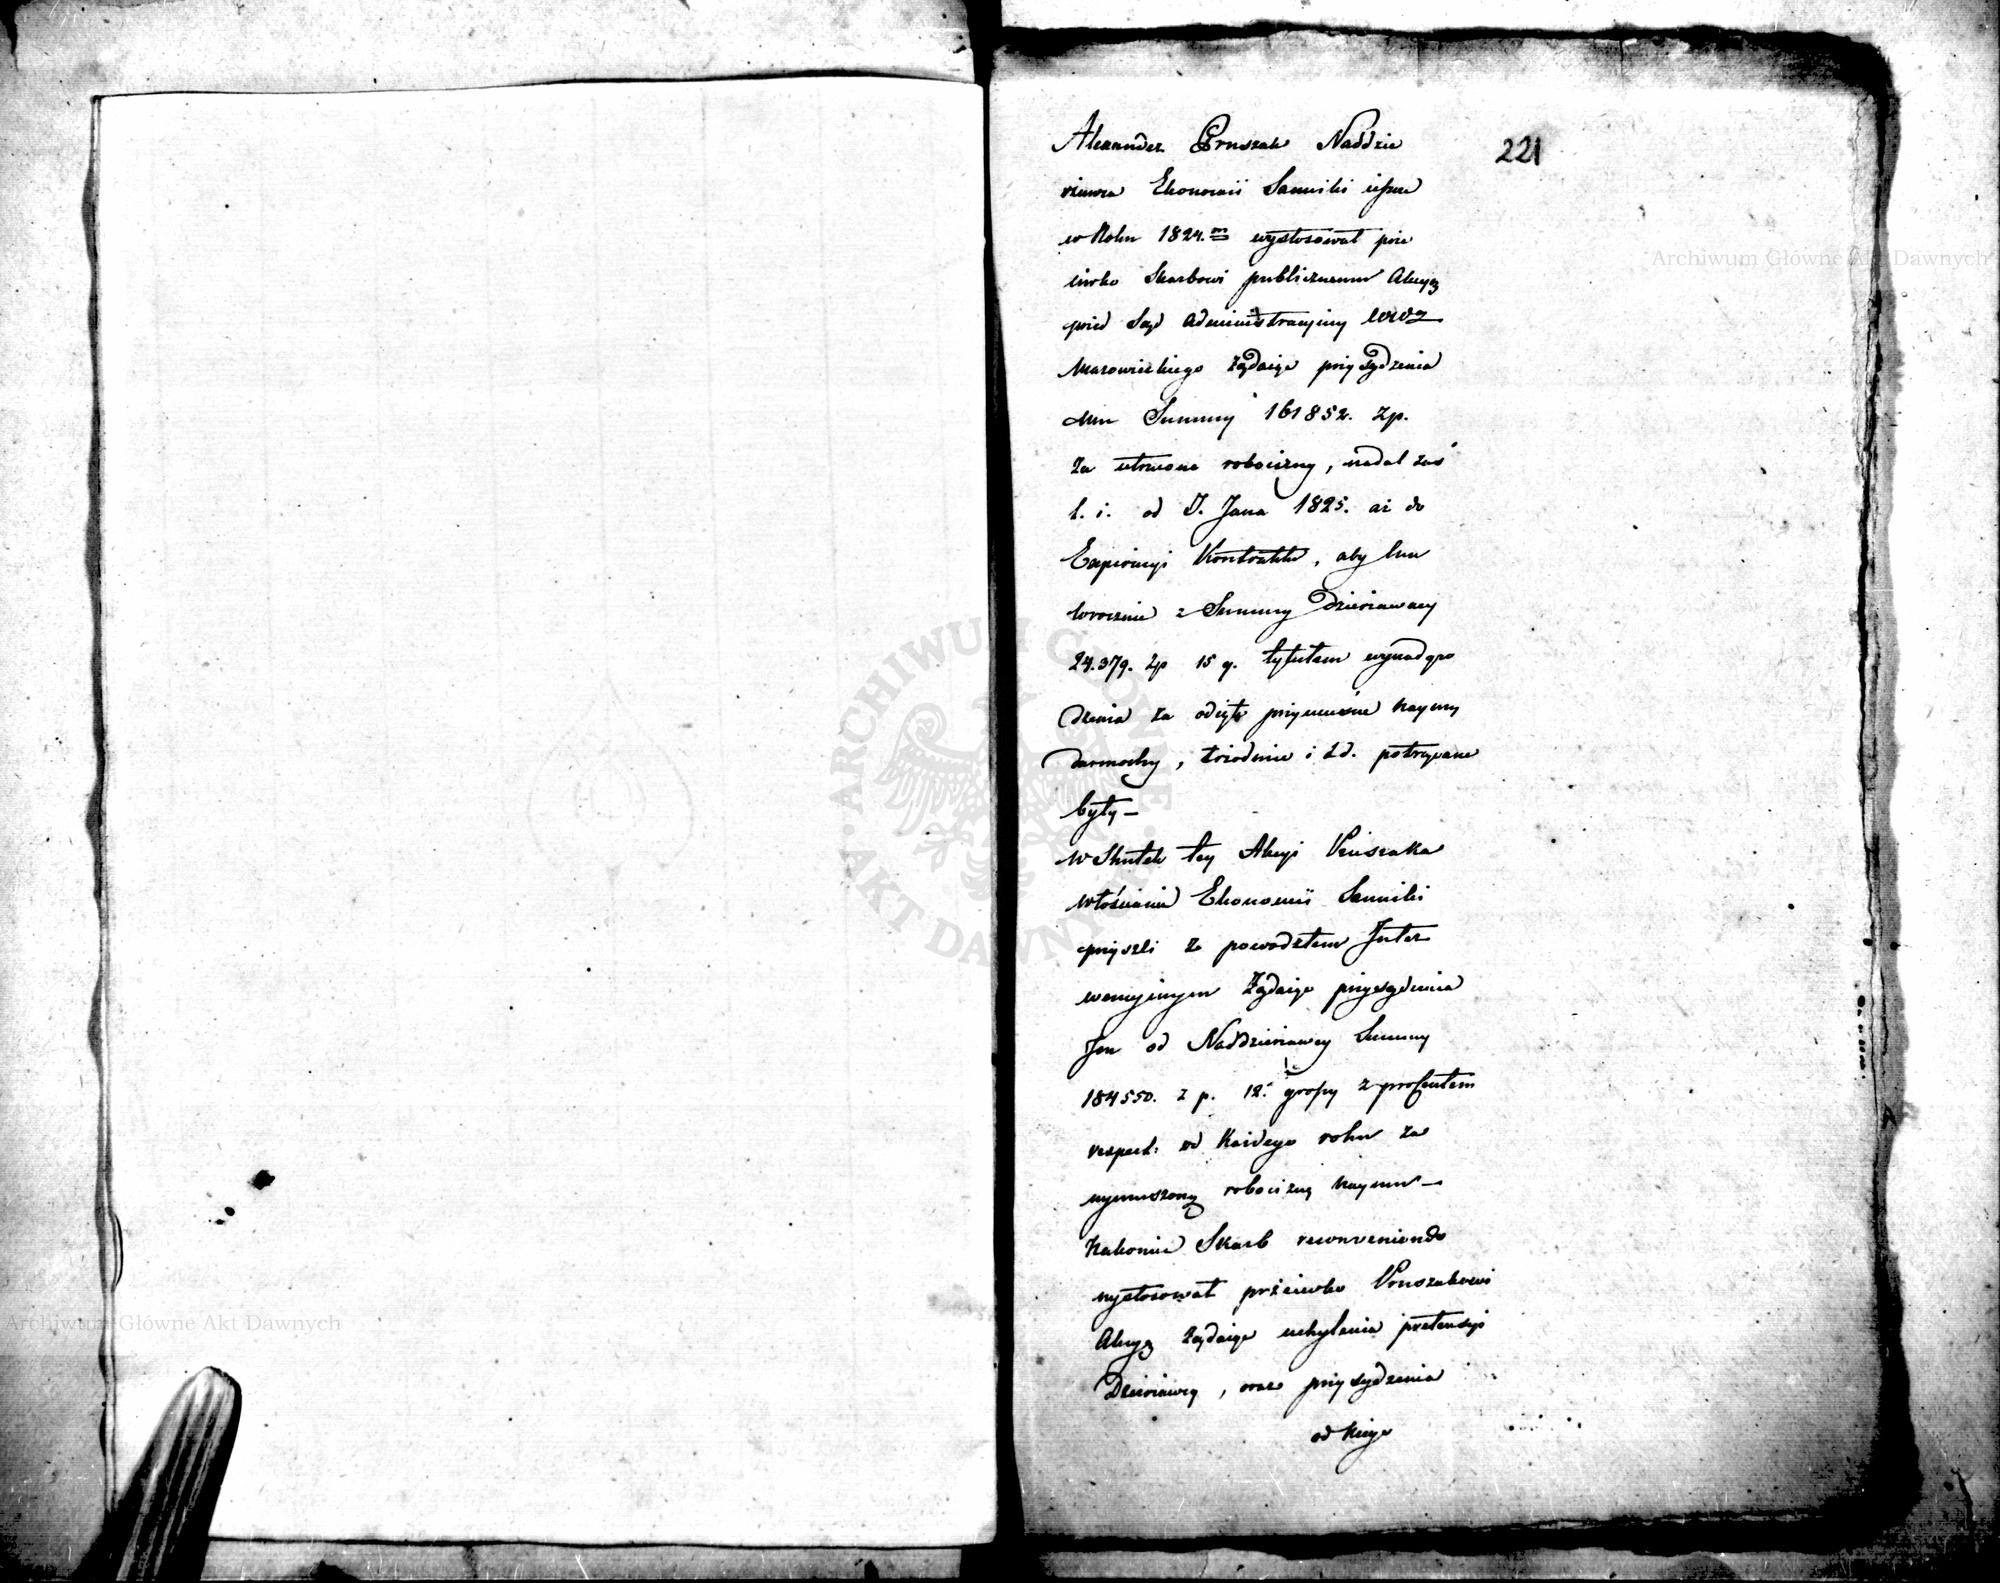 221
Alexander Pruszak Naddzie
rżawca Ekonomii Sanniki ieszcze
w Roku 1824.m wystosował prze
ciwko Skarbowi publicznemu Akcyą
przed Sąd Administracyiny Wdz
Mazowieckiego żądaiąc przysądzenia
Mu Summy 161852. Zp.
za utracone robocizny, nadal zaś
t. i. od S. Jana 1825. aż do
Expiracyi Kontraktu, aby Mu
corocznie z Summy Dzierżawney
24.379. Zp 15 g. tytułem wynadgro
dzenia za odięte przymusne naymy
darmochy, tłoki i t.d. potrącane
były —
W Skutek tey Akcyi Pruszaka
włościanie Ekonomii Sanniki
przyszli z powodztem Inter
wencyinym żądaiąc przysądzenia
Im od Naddzierżawcy Summy
184550. z p. 12. groszy z procentem
respect: od Każdego roku za
wymuszoną robociznę naymu —
Nakoniec Skarb reconveniendo
wystosował przeciwko Pruszakowi
Akcyą żądaiąc uchylenia pretensyi
Dzierżawcy, oraz przysądzenia
od niego
ARCHIWUM GŁÓWNE AKT DAWNYCH
Archiwum Główne Akt Dawnych
Archiwum Główne Akt Dawnych